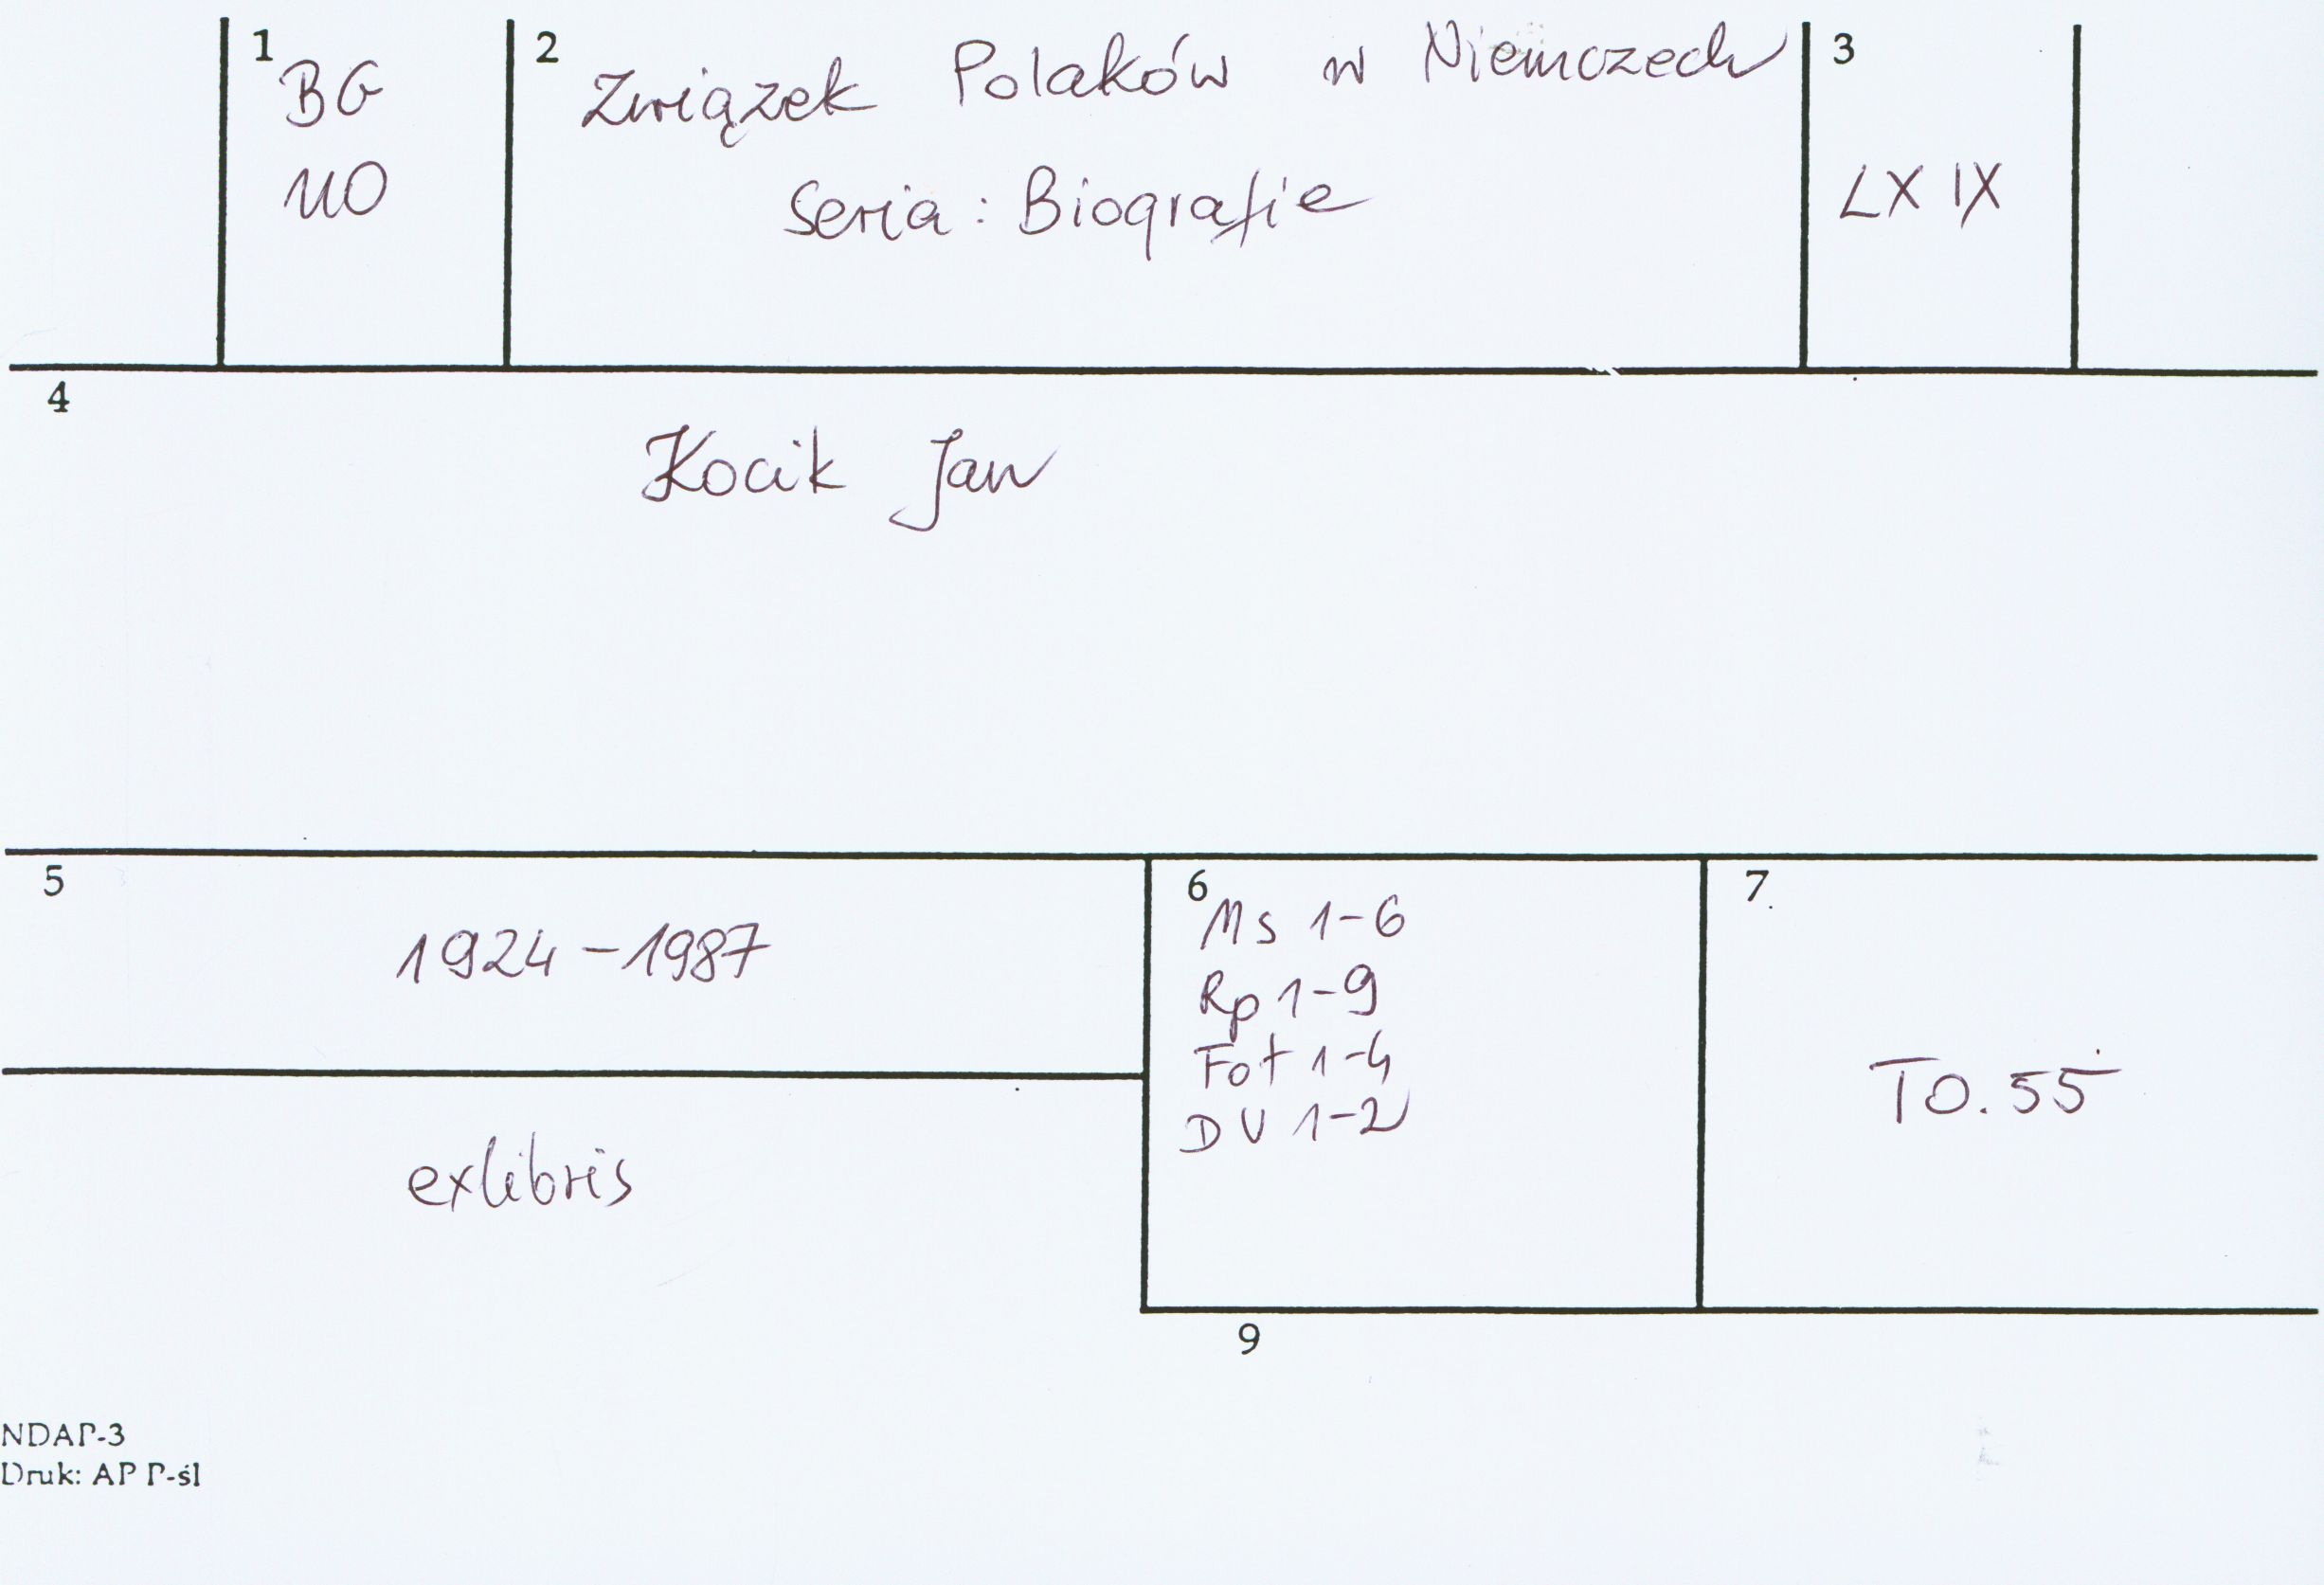 1
BG
UO
2
Związek Polaków w Niemczech
Seria: Biografie
3
LXIX
4
Kocik Jan
5
1924-1987
exlibris
6
Ms 1-6
Rp 1-9
Fot 1-4
DU 1-2
7.
TO.55
9
NDAP-3
Druk: AP P-śl